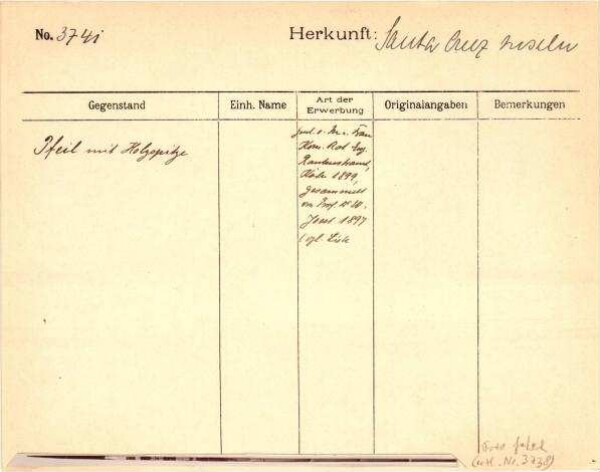 No. 374i
Herkunft: Santa Cruz Inseln
Gegenstand Einh. Name Art der Erwerbung Originalangaben Bemerkungen
Pfeil mit Holzspitze
Frau
Kom. Rat Eug.
Rautenstrauch,
Köln 1899,
gesammelt
von Prof. W.
Joest 1897
(vgl. Liste
(vgl. Nr. 3738)